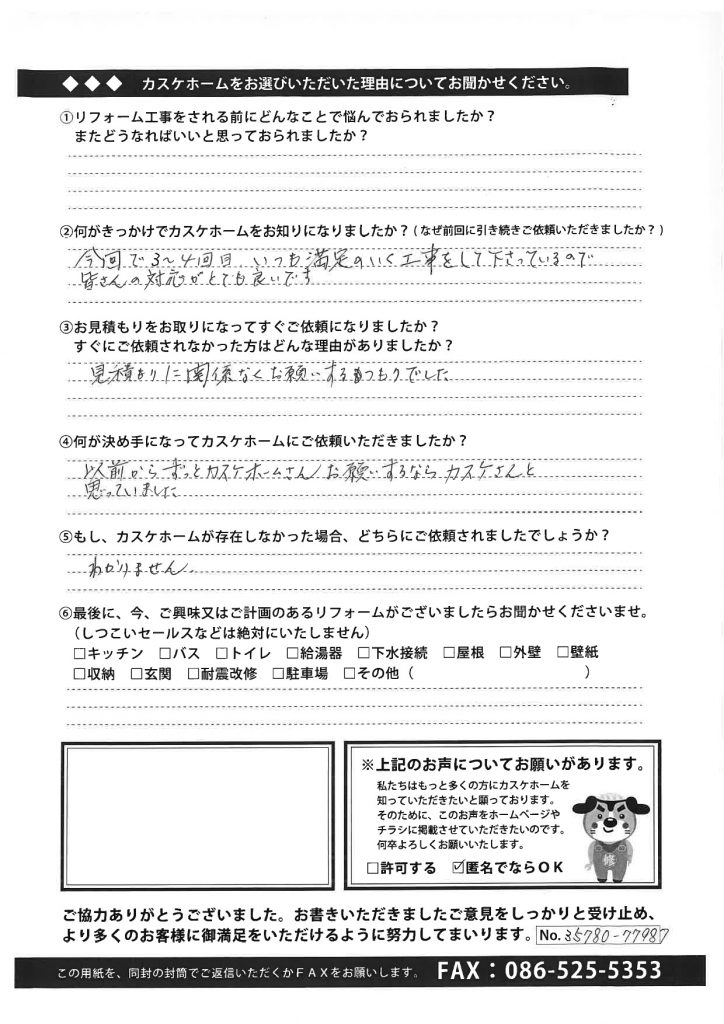 ◆◆◆ カスケホームをお選びいただいた理由についてお聞かせください。
①リフォーム工事をされる前にどんなことで悩んでおられましたか？
またどうなればいいと思っておられましたか？
②何がきっかけでカスケホームをお知りになりましたか？（なぜ前回に引き続きご依頼いただきましたか？）
今回で3〜4回目、いつも満足のいく工事をして下さっているので
皆さんの対応がとても良いです
③お見積もりをお取りになってすぐご依頼になりましたか？
すぐにご依頼されなかった方はどんな理由がありましたか？
見積もりに関係なくお願いするつもりでした
④何が決め手になってカスケホームにご依頼いただきましたか？
以前からずっとカスケホームさん お願いするならカスケさんと
思っていました
⑤もし、カスケホームが存在しなかった場合、どちらにご依頼されましたでしょうか？
わかりません。
⑥最後に、今、ご興味又はご計画のあるリフォームがございましたらお聞かせくださいませ。
（しつこいセールスなどは絶対にいたしません）
□キッチン □バス □トイレ □給湯器 □下水接続 □屋根 □外壁 □壁紙
□収納 □玄関 □耐震改修 □駐車場 □その他（ ）
※上記のお声についてお願いがあります。
私たちはもっと多くの方にカスケホームを
知っていただきたいと願っております。
そのために、このお声をホームページや
チラシに掲載させていただきたいのです。
何卒よろしくお願いいたします。
□許可する ☑匿名でならＯＫ
修
ご協力ありがとうございました。お書きいただきましたご意見をしっかりと受け止め、
より多くのお客様に御満足をいただけるように努力してまいります。 No. 35780-77987
この用紙を、同封の封筒でご返信いただくかＦＡＸをお願いします。 FAX：086-525-5353